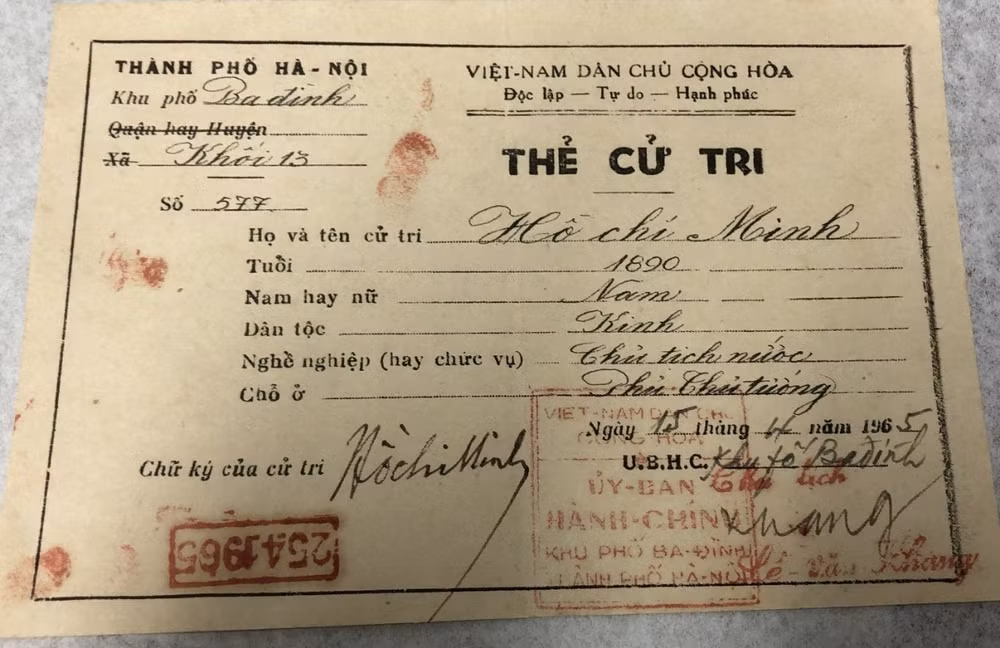 THÀNH PHỐ HÀ-NỘI
Khu phố Ba đình
Quận hay Huyện
Xã Khối 13
Số 577
VIỆT-NAM DÂN CHỦ CỘNG HÒA
Độc lập — Tự do — Hạnh phúc
THẺ CỬ TRI
Họ và tên cử tri Hồ chí Minh
Tuổi 1890
Nam hay nữ Nam
Dân tộc Kinh
Nghề nghiệp (hay chức vụ) Chủ tịch nước
Chỗ ở Phủ Chủ tướng
Ngày 15 tháng 4 năm 1965
U.B.H.C. Khu fố Ba đình
Chủ tịch
Chữ ký của cử tri Hồ chí Minh
Khang
Lê-văn Khang
VIỆT-NAM DÂN CHỦ
CỘNG HÒA
ỦY-BAN
HÀNH-CHÍNH
KHU PHỐ BA-ĐÌNH
THÀNH PHỐ HÀ-NỘI
2541965